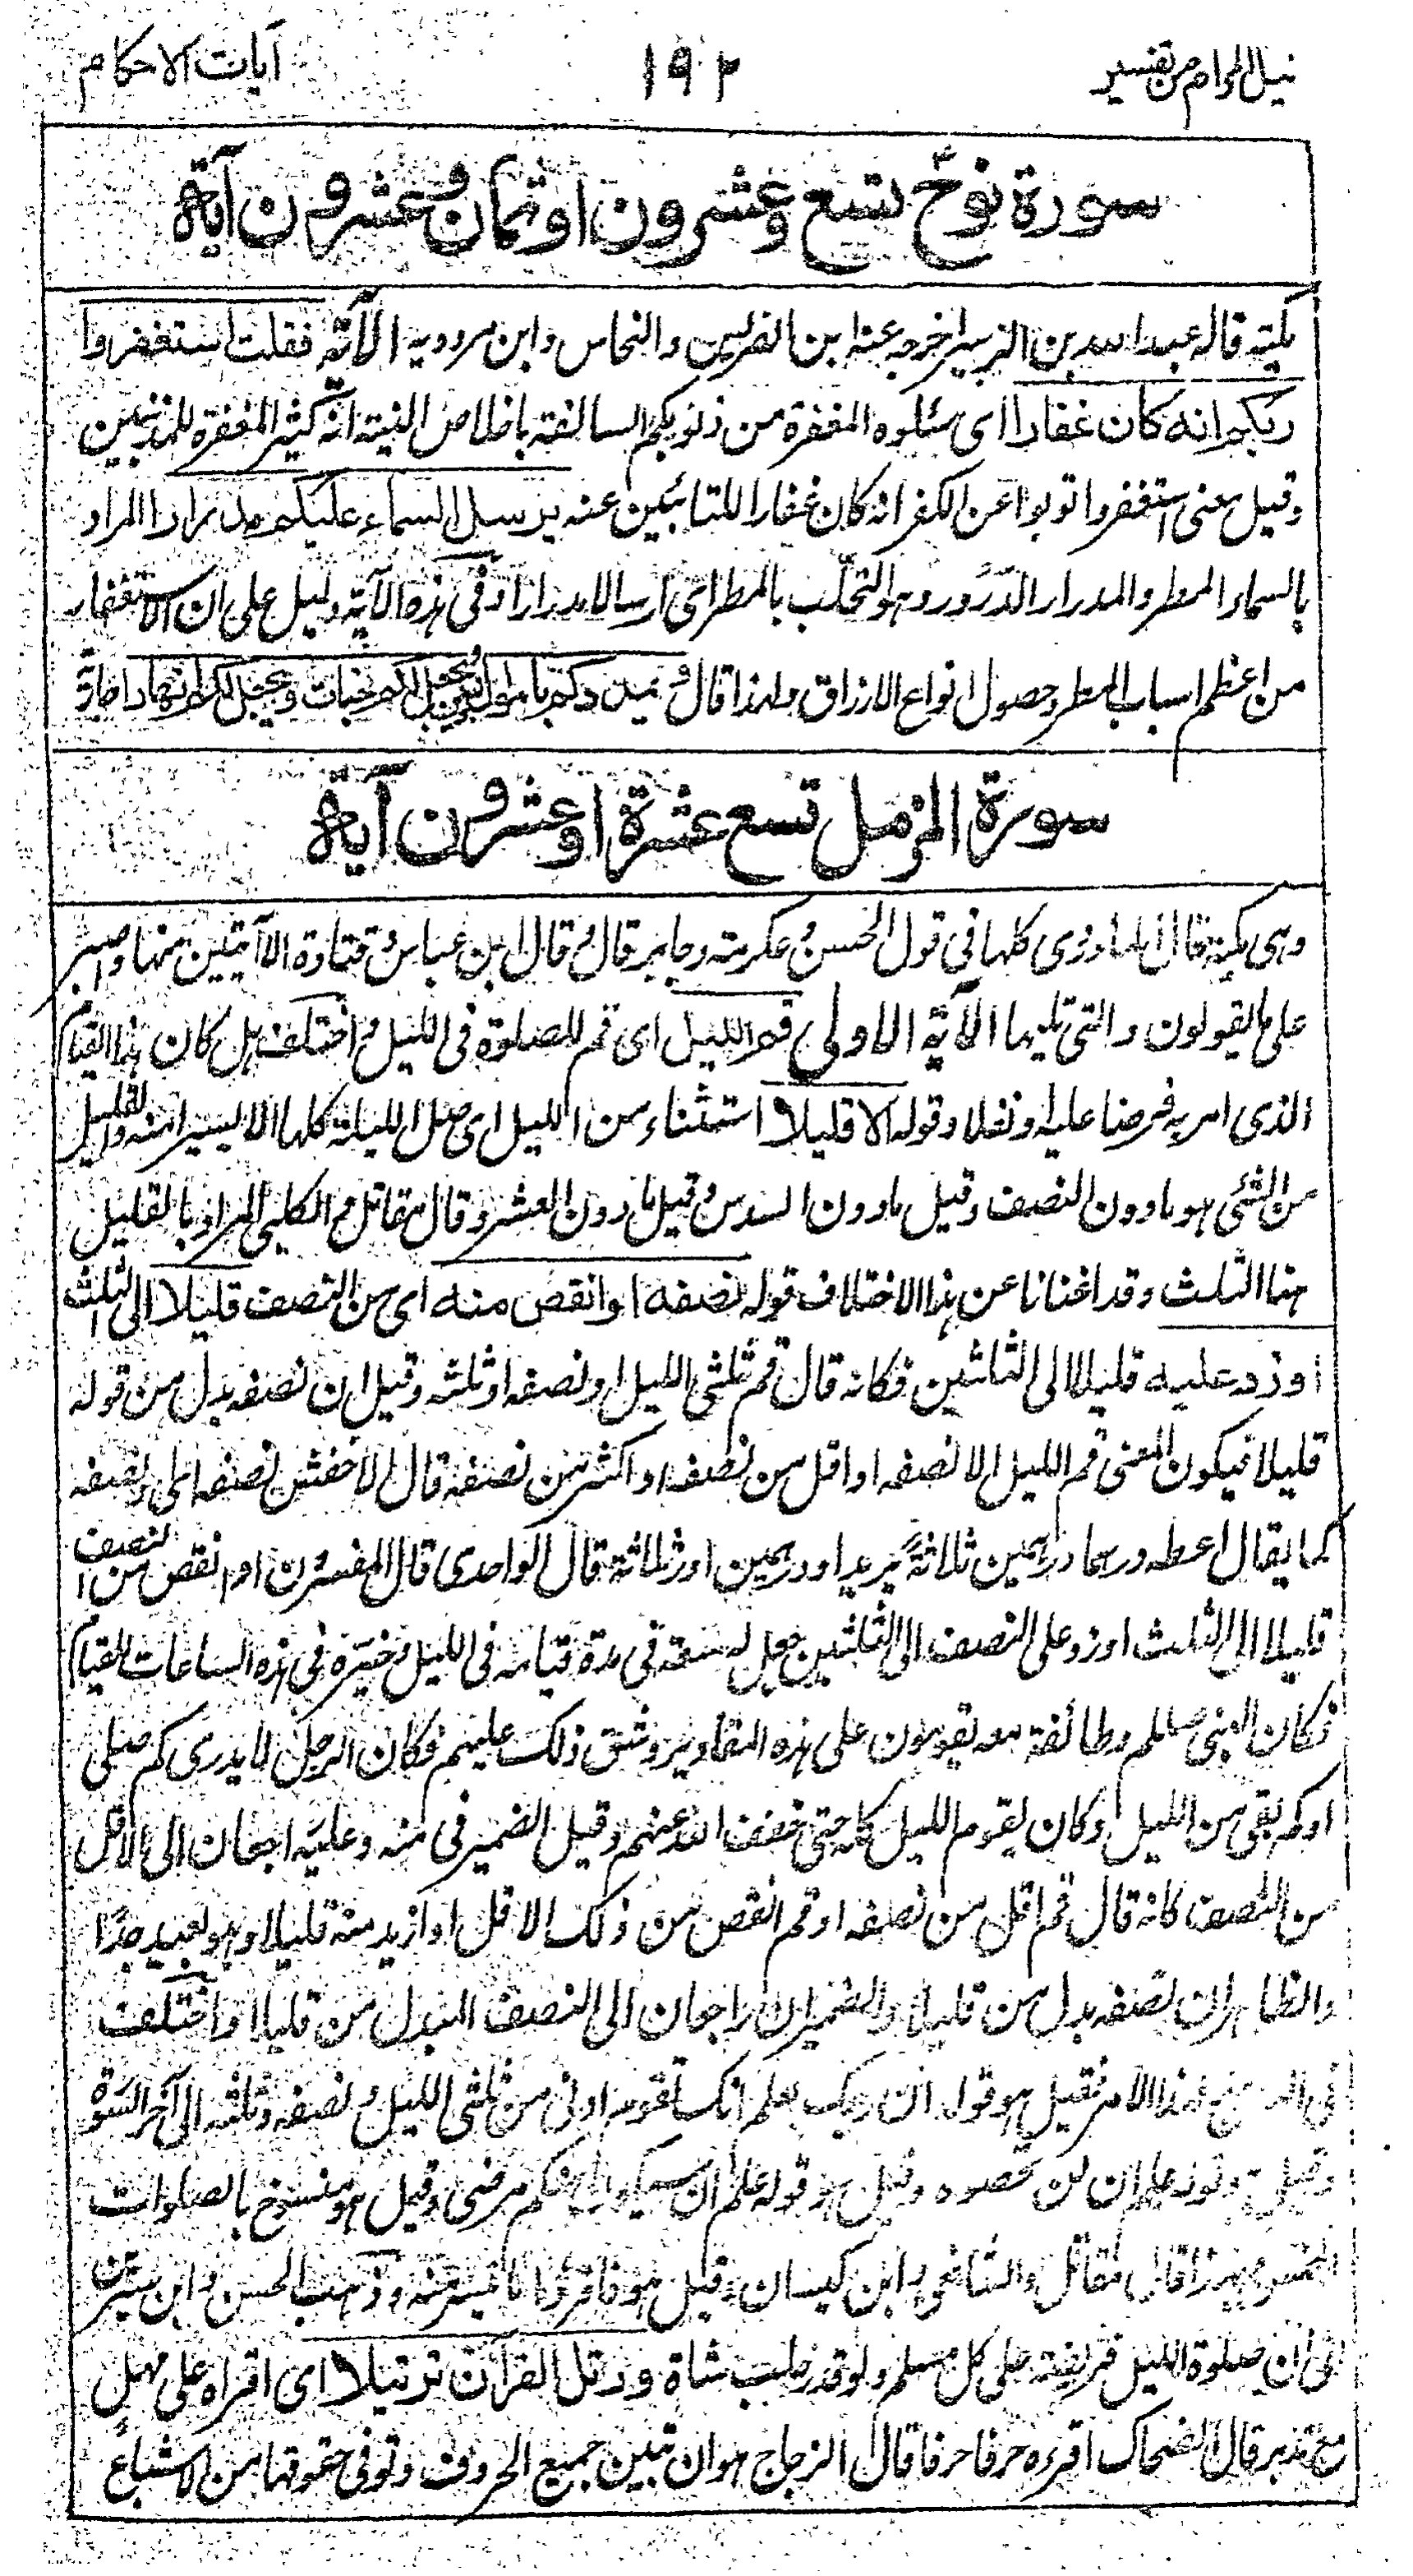 نيل المرام من تفسير ١٩٢ آيات الاحكام
سورة نوح تسع وعشرون او ثمان وعشرون آية
مكية قاله عبد الله بن الزبير اخرجه عنه ابن الضريس والنحاس وابن مردويه الآية فقلت استغفروا
ربكم انه كان غفارا اى سئلوه المغفرة من ذنوبكم السالفة باخلاص النية انه كثير المغفرة للمذنبين
وقيل معنى استغفروا توبوا عن الكفر انه كان غفارا للتائبين عنه يرسل السماء عليكم مدرارا المراد
بالسماء المطر والمدرار الدرور وهو التحلب بالمطر اى ارسالا مدرارا وفى هذه الآية دليل على ان الاستغفار
من اعظم اسباب المطر وحصول انواع الارزاق ولهذا قال ويمددكم باموال وبنين ويجعل لكم جنات ويجعل لكم انهارا جارة
سورة المزمل تسع عشرة او عشرون آية
وهى مكية قال الماوردى كلها فى قول الحسن وعكرمة وجابر قال وقال ابن عباس وقتادة الا آيتين منها واصبر
على ما يقولون والتى تليها الآية الاولى قم الليل اى قم للصلوة فى الليل واختلف هل كان هذا القيام
الذى امر به فرضا عليه او نفلا وقوله الا قليلا استثناء من الليل اى صل الليلة كلها الا يسيرا منه والقليل
من الشئ هو ما دون النصف وقيل ما دون السدس وقيل ما دون العشر وقال مقاتل والكلبى المراد بالقليل
هنا الثلث وقد اغنانا عن هذا الاختلاف قوله نصفه او انقص منه اى من النصف قليلا الى الثلث
او زد عليه قليلا الى الثلثين فكانه قال قم ثلثى الليل او نصفه او ثلثه وقيل ان نصفه بدل من قوله
قليلا فيكون المعنى قم الليل الا نصفه او اقل من نصفه او اكثر من نصفه قال الاخفش نصفه اى او نصفه
كما يقال اعطه درهما درهمين ثلاثة يريد او درهمين او ثلاثة قال الواحدى قال المفسرون او انقص من النصف
قليلا الى الثلث او زد على النصف الى الثلثين جعل له سعة فى مدة قيامه فى الليل وخيره فى هذه الساعات للقيام
فكان النبى صلعم وطائفة معه يقومون على هذه المقادير وشق ذلك عليهم فكان الرجل لا يدرى كم صلى
او كم بقى من الليل وكان يقوم الليل كله حتى خفف الله عنهم وقيل الضمير فى منه وعليه راجعان الى الاقل
من النصف كانه قال قم اقل من نصفه او قم انقص من ذلك الاقل او ازيد منه قليلا وهو بعيد جدا
والظاهر ان نصفه بدل من قليلا والضميران راجعان الى النصف المبدل من قليلا واختلف
فى الناسخ لهذا الامر فقيل هو قوله ان ربك يعلم انك تقوم ادنى من ثلثى الليل ونصفه وثلثه الى آخر السورة
وقيل هو قوله علم ان لن تحصوه وقيل هو قوله علم ان سيكون منكم مرضى وقيل هو منسوخ بالصلوات
الخمس وبهذا قال مقاتل والشافعى وابن كيسان وقيل هو فاقرؤا ما تيسر منه وذهب الحسن وابن سيرين
الى ان صلوة الليل فريضة على كل مسلم ولو قدر حلب شاة ورتل القرآن ترتيلا اى اقراه على مهل
مع تدبر قال الضحاك اقرءه حرفا حرفا قال الزجاج هو ان تبين جميع الحروف وتوفى حقوقها من الاشباع